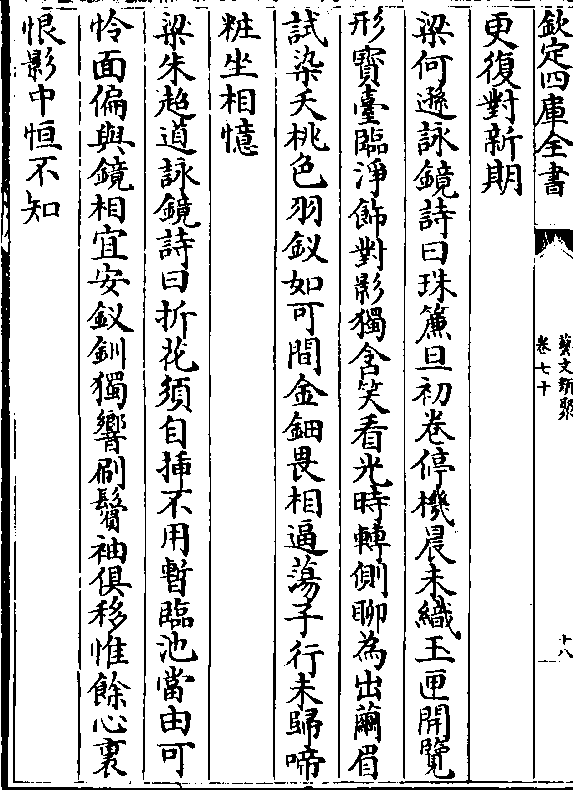 欽定四庫全書
藝文類聚
卷七十
十八
更復對新期
梁何遜詠鏡詩曰珠簾旦初卷停機晨未織玉匣開覽
形寶臺臨淨飾對影獨含笑看光時轉側聊為出繭眉
試染夭桃色羽釵如可間金鈿畏相逼蕩子行未歸啼
粧坐相憶
梁朱超道詠鏡詩曰折花須自插不用暫臨池當由可
怜面偏與鏡相宜安釵釧獨響刷鬢袖俱移惟餘心裏
恨影中恒不知